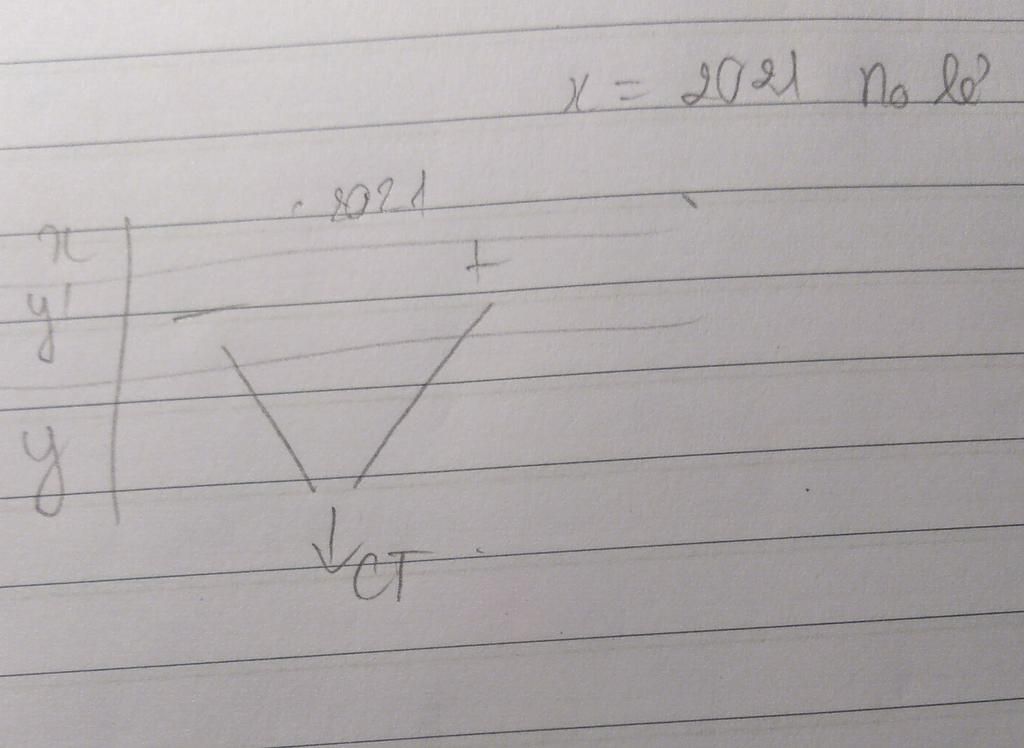 x = 2021 no lẻ
2021
x
+
y'
−
y
CT